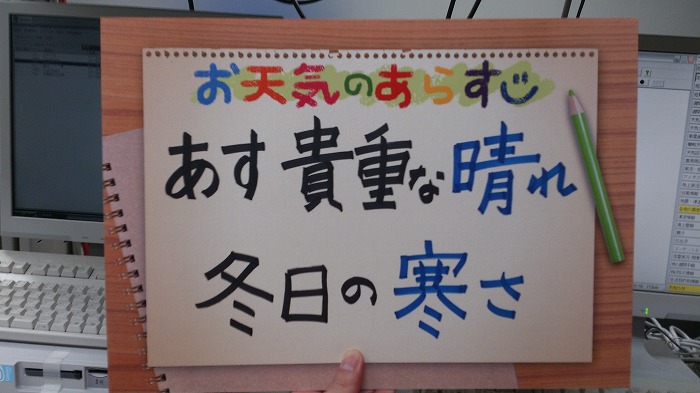 お天気のあらすじ
あす貴重な晴れ
冬日の寒さ